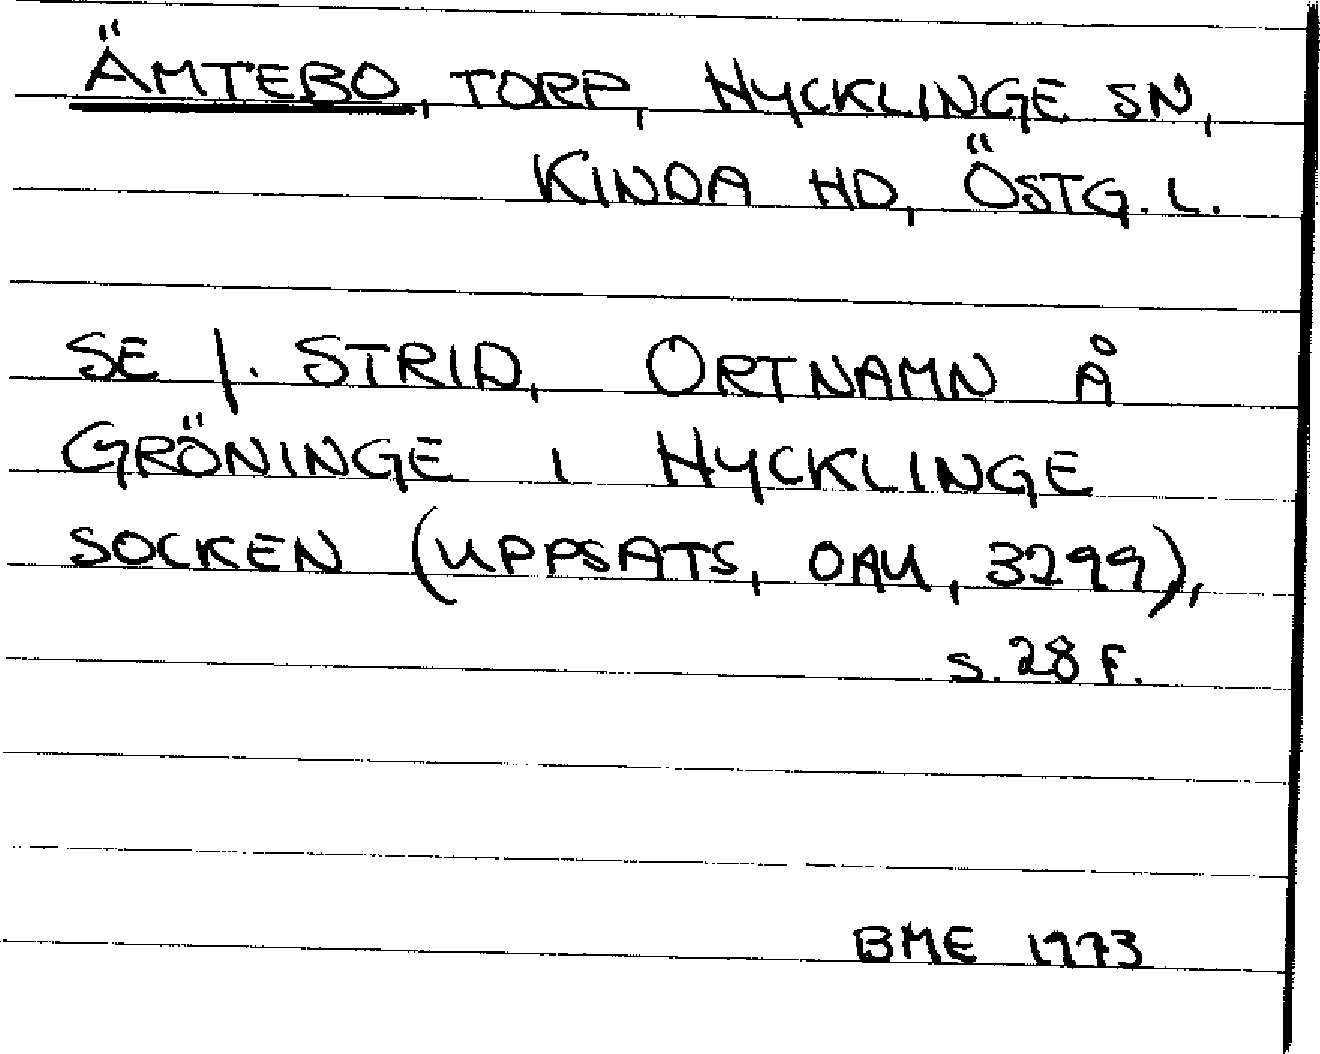 ÄMTEBO, TORP, HYCKLINGE SN,
KINDA HD, ÖSTG. L.
SE J. STRID, ORTNAMN Å
GRÖNINGE I HYCKLINGE
SOCKEN (UPPSATS, OAU, 3299),
S. 28 F.
BME 1973